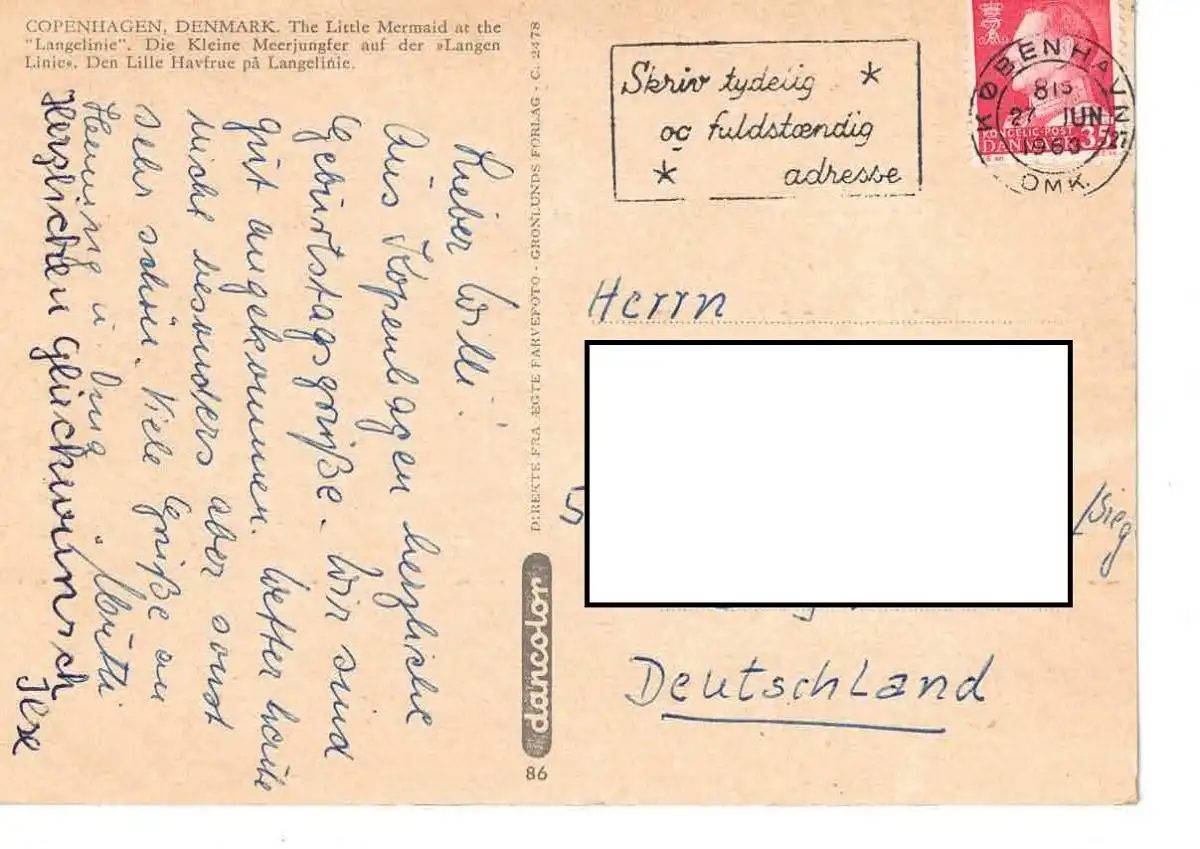 COPENHAGEN, DENMARK. The Little Mermaid at the
"Langelinie". Die Kleine Meerjungfer auf der »Langen
Linie«. Den Lille Havfrue på Langelinie.
Lieber Willi.
Aus Kopenhagen herzliche
Geburtstagsgrüße. Wir sind
gut angekommen. Wetter heute
nicht besonders aber sonst
sehr schön. Viele Grüße an
Henning u. Mutti
Herzlichen Glückwunsch
Ilse
DIREKTE FRA ÆGTE FARVEFOTO - GRØNLUNDS FORLAG - C. 2478
dancolor
86
Skriv tydelig *
og fuldstændig
* adresse
KØBENHAVN
815
27 JUN
1963
27
OMK.
KONGELIG-POST
DANMARK 35
Herrn
5
/Sieg
Deutschland